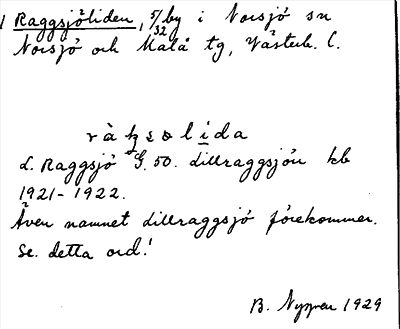 1 Raggsjöliden, 5/32 by i Norsjö sn
Norsjö och Malå tg, Västerb. l.
d. Raggsjö G. 50. lillraggsjön kb
1921-1922.
Även namnet lillraggsjö förekommer.
Se. detta ord!
B. 1929